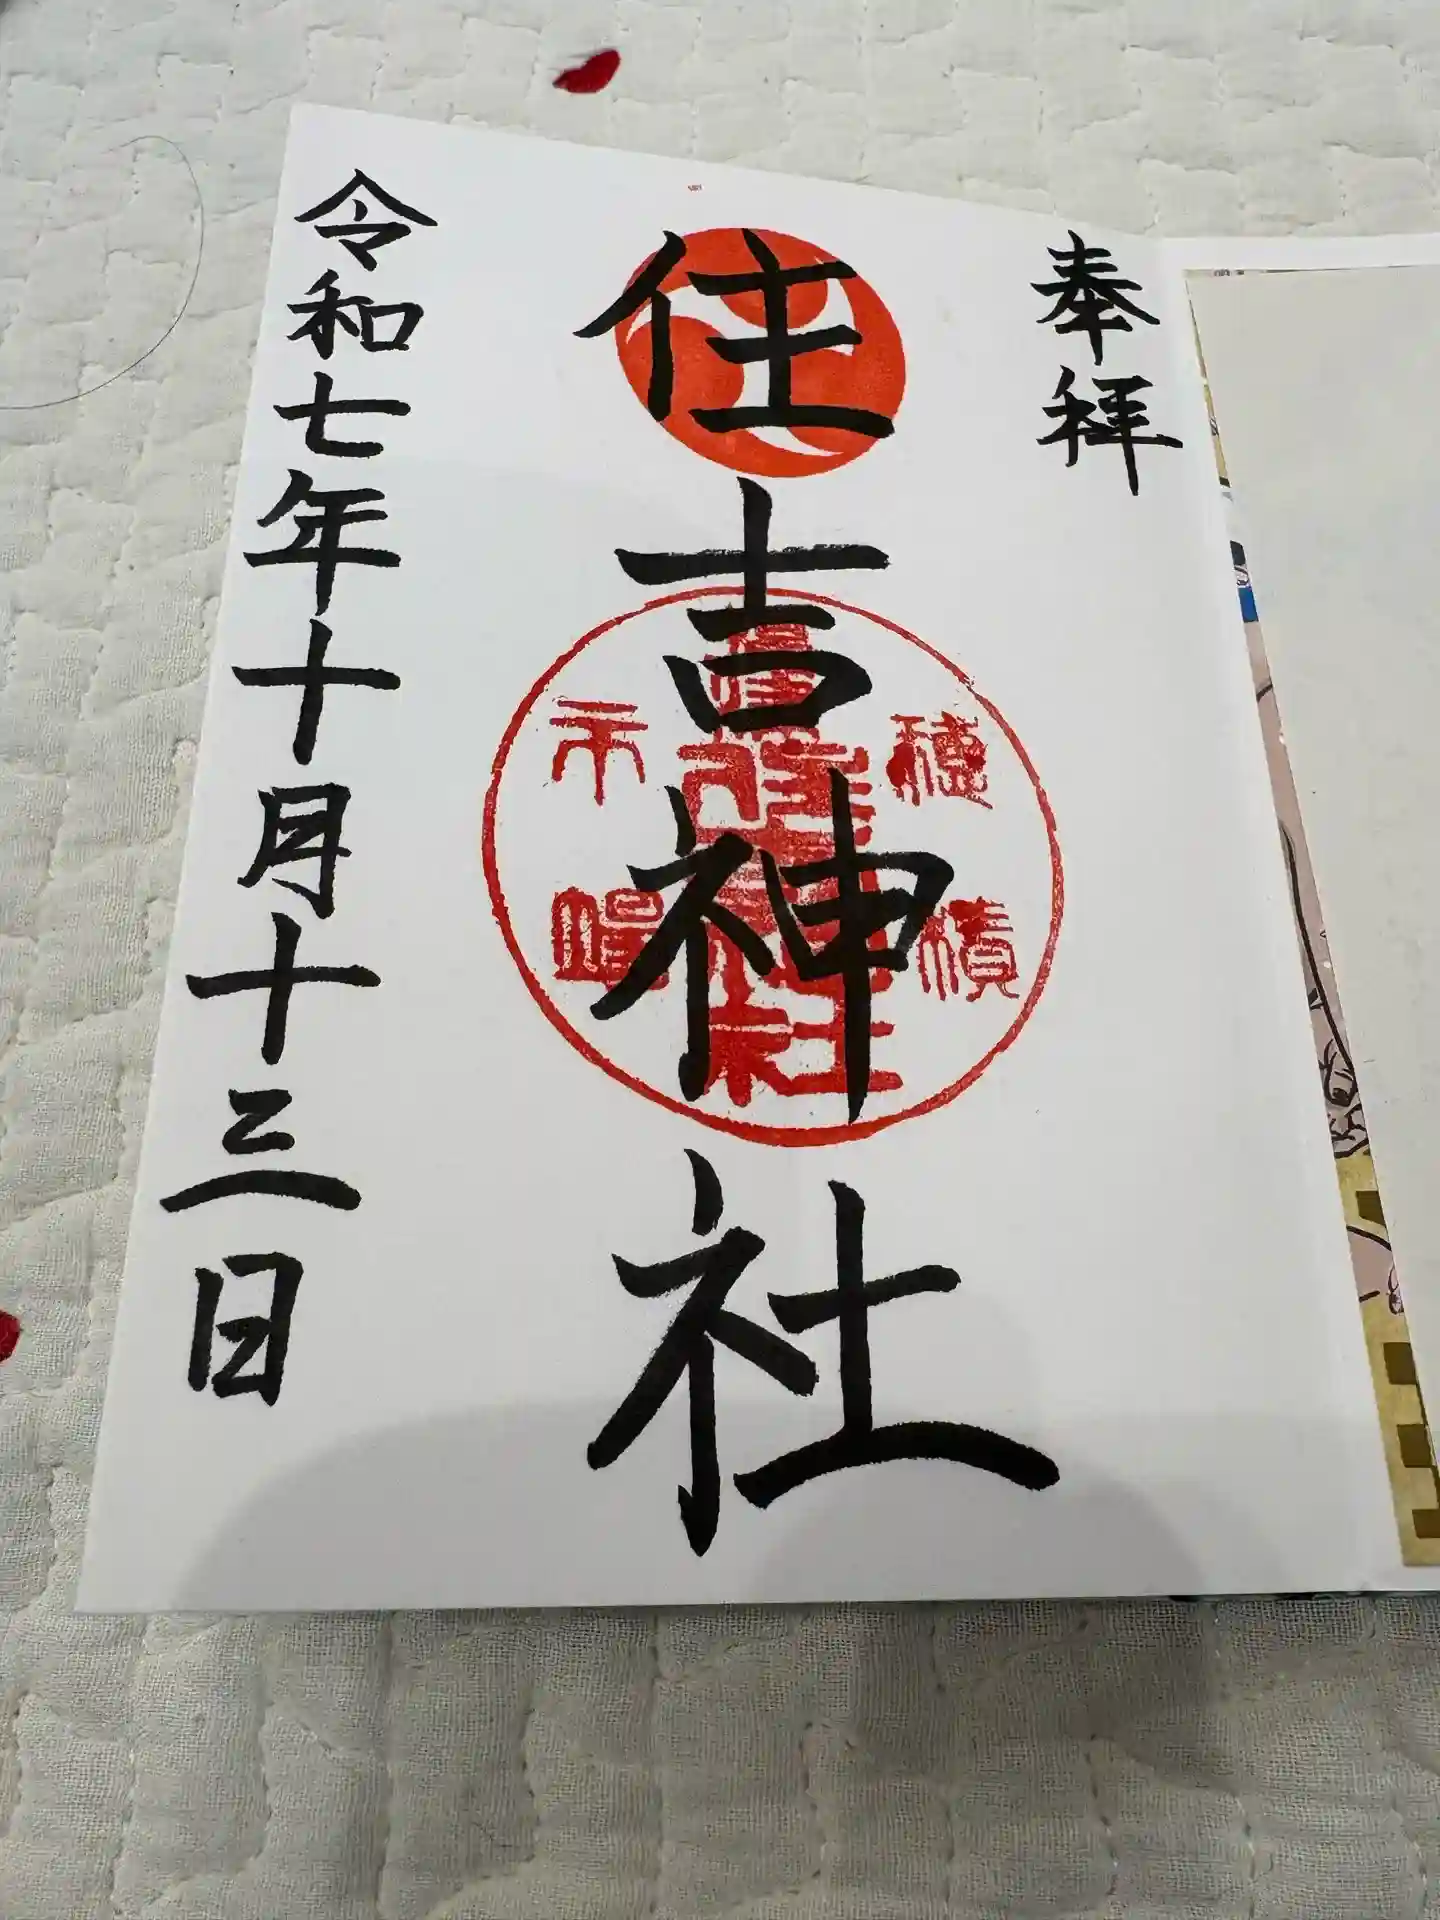 奉拝
住吉神社
令和七年十月十三日